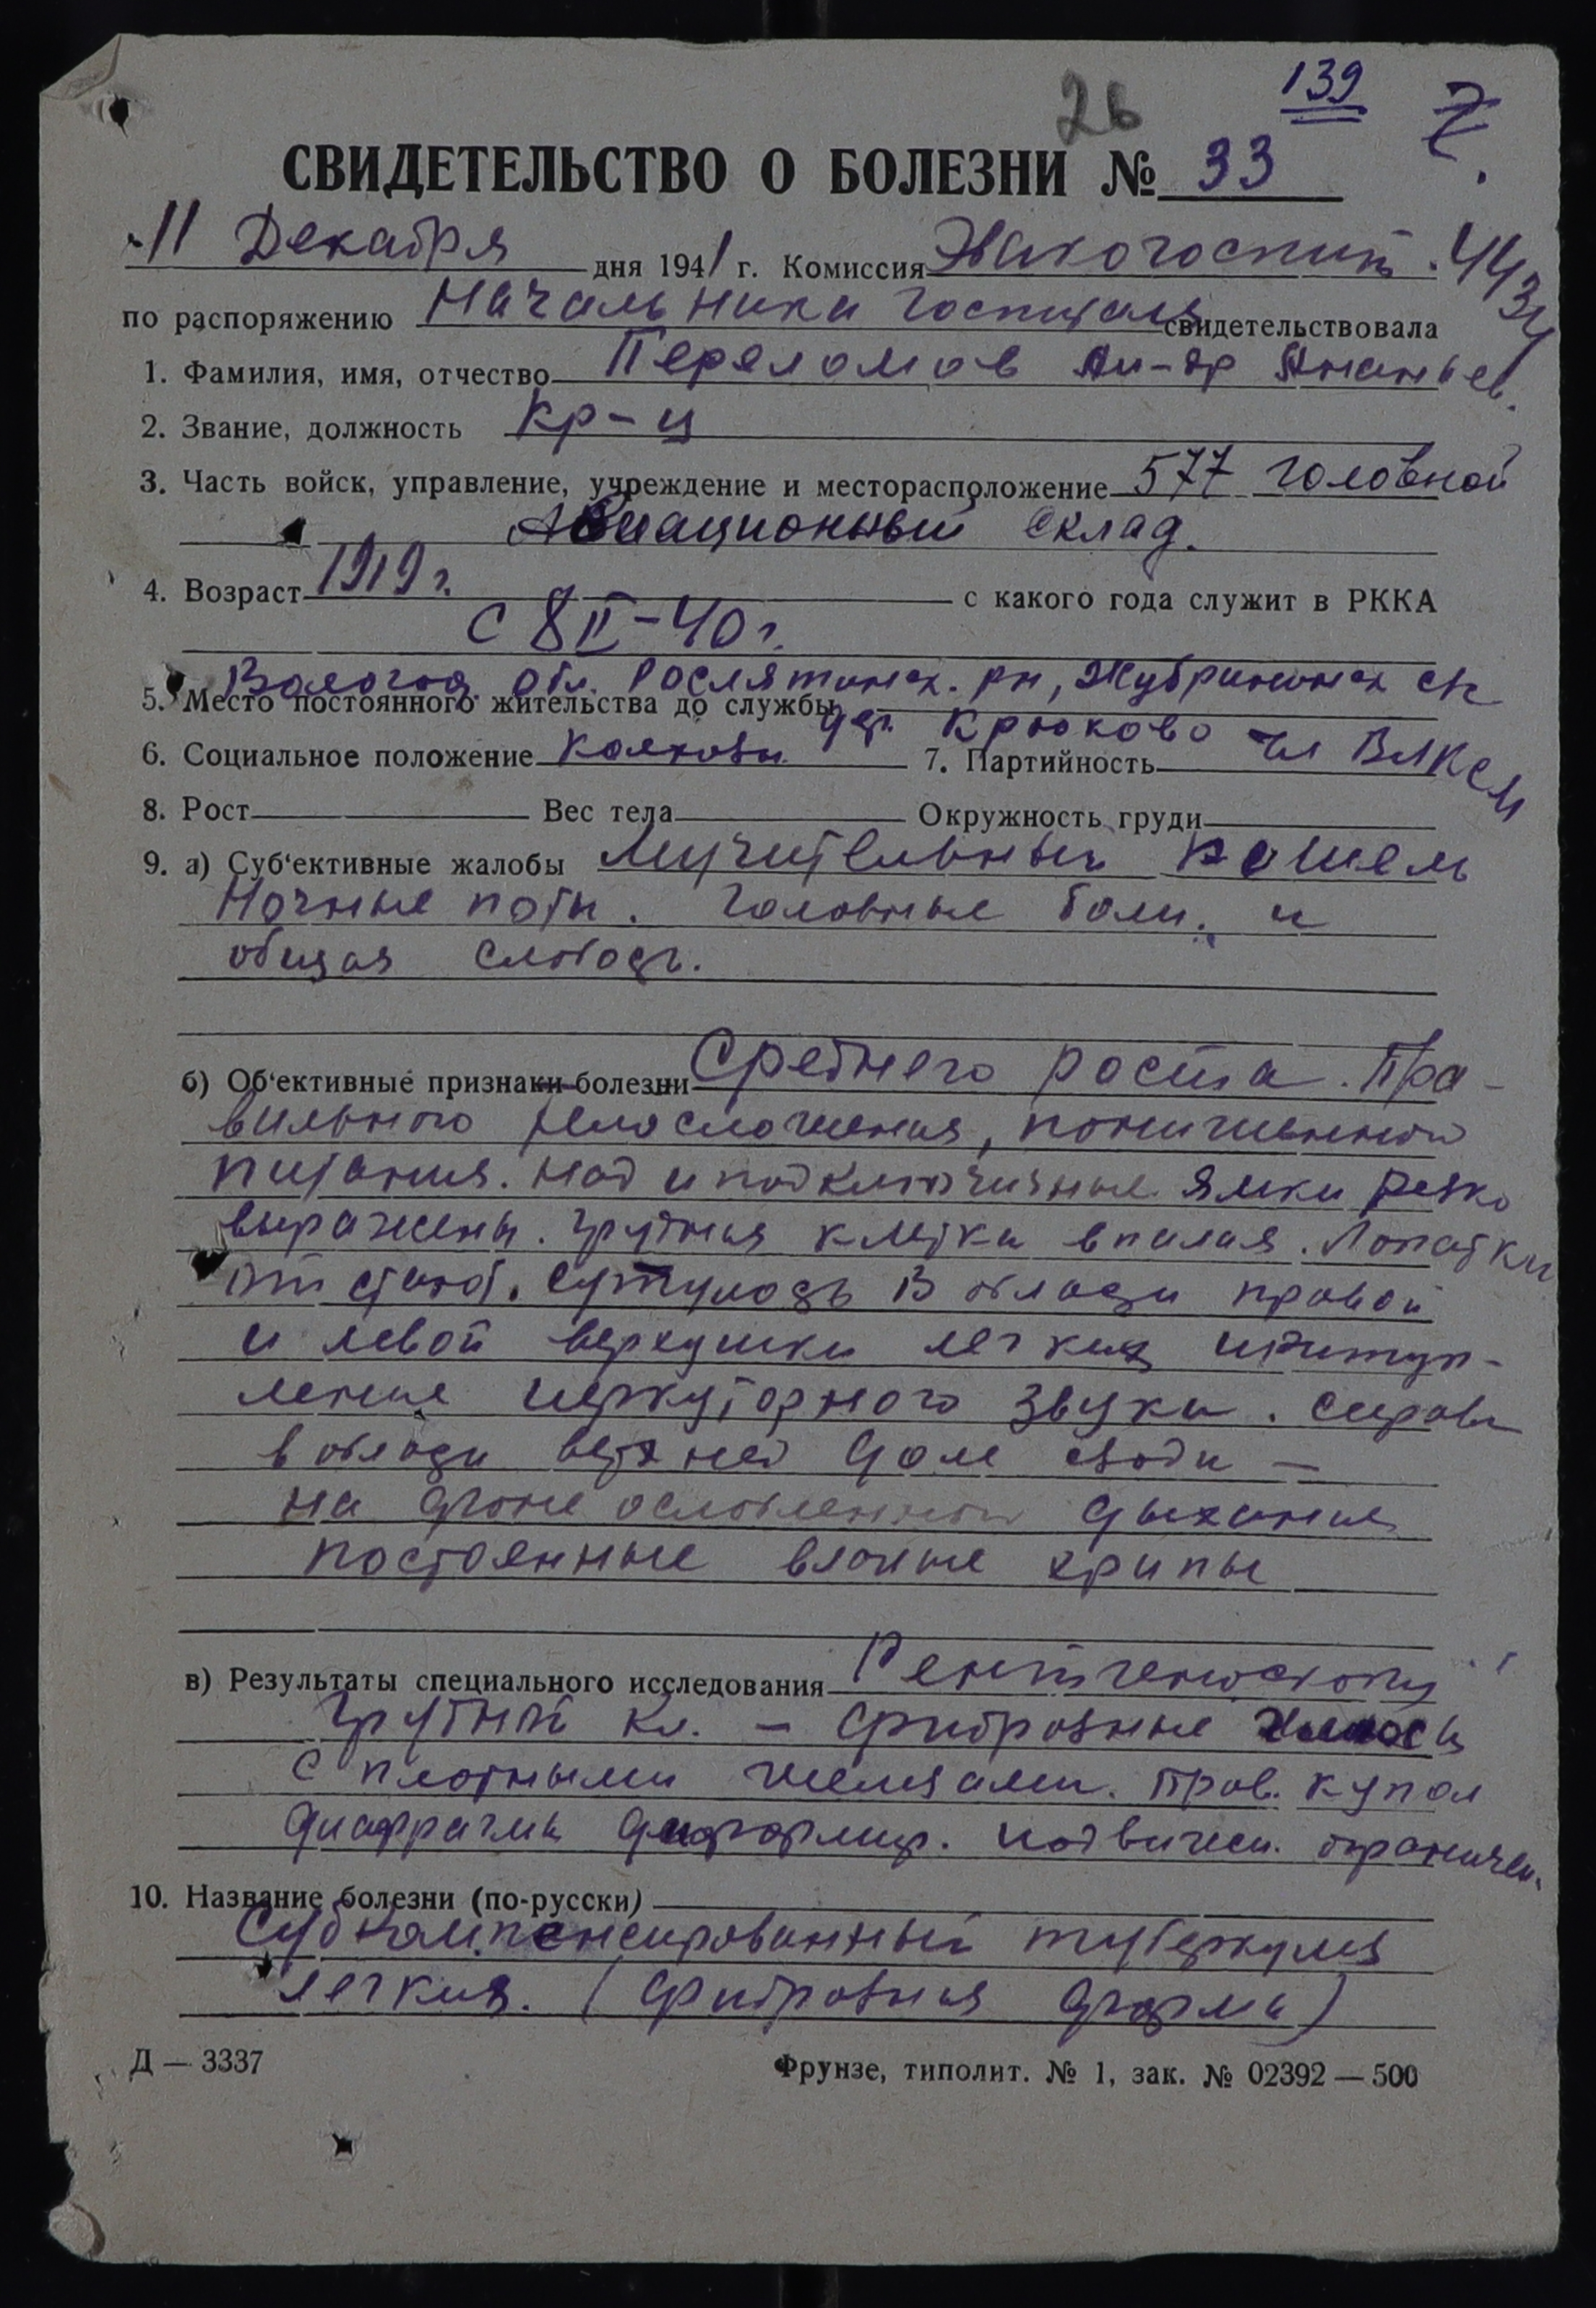 139
26
7.
СВИДЕТЕЛЬСТВО О БОЛЕЗНИ № 33
11 Декабря дня 1941 г. Комиссия Эвакогоспит. 4434
по распоряжению Начальника Госпиталя свидетельствовала
1. Фамилия, имя, отчество Переломов Ал-др Ананьев.
2. Звание, должность Кр-ц
3. Часть войск, управление, учреждение и месторасположение 577 головной
Авиационный склад.
4. Возраст 1919 г. с какого года служит в РККА
С 8 II-40 г.
Вологод. обл. Рослятинск. рн,
5. Место постоянного жительства до службы дер. Крюково
6. Социальное положение колхозн. 7. Партийность чл ВЛКСМ
8. Рост Вес тела Окружность груди
9. а) Суб'ективные жалобы Мучительный кошель
Ночные поты. головные боли. и
общая слабость.
б) Об'ективные признаки болезни Среднего роста. Пра-
вильного телосложения, пониженного
питания. Над и подключичные ямки резко
выражены. грудная клетка впалая. Лопатки
отстают. Сутулость В области правой
и левой верхушки легких притуп-
ление перкуторного звука. Справа
в области верхней доле сзади —
на фоне ослабленного дыхания
постоянные влажные хрипы
в) Результаты специального исследования Рентгеноскопия
грудной кл. — фиброзные
с плотными железами. Прав. купол
диафрагмы деформир. подвижн. ограничен.
10. Название болезни (по-русски)
Субкомпенсированный туберкулез
легких. (фиброзная форма)
Д — 3337
Фрунзе, типолит. № 1, зак. № 02392 — 500